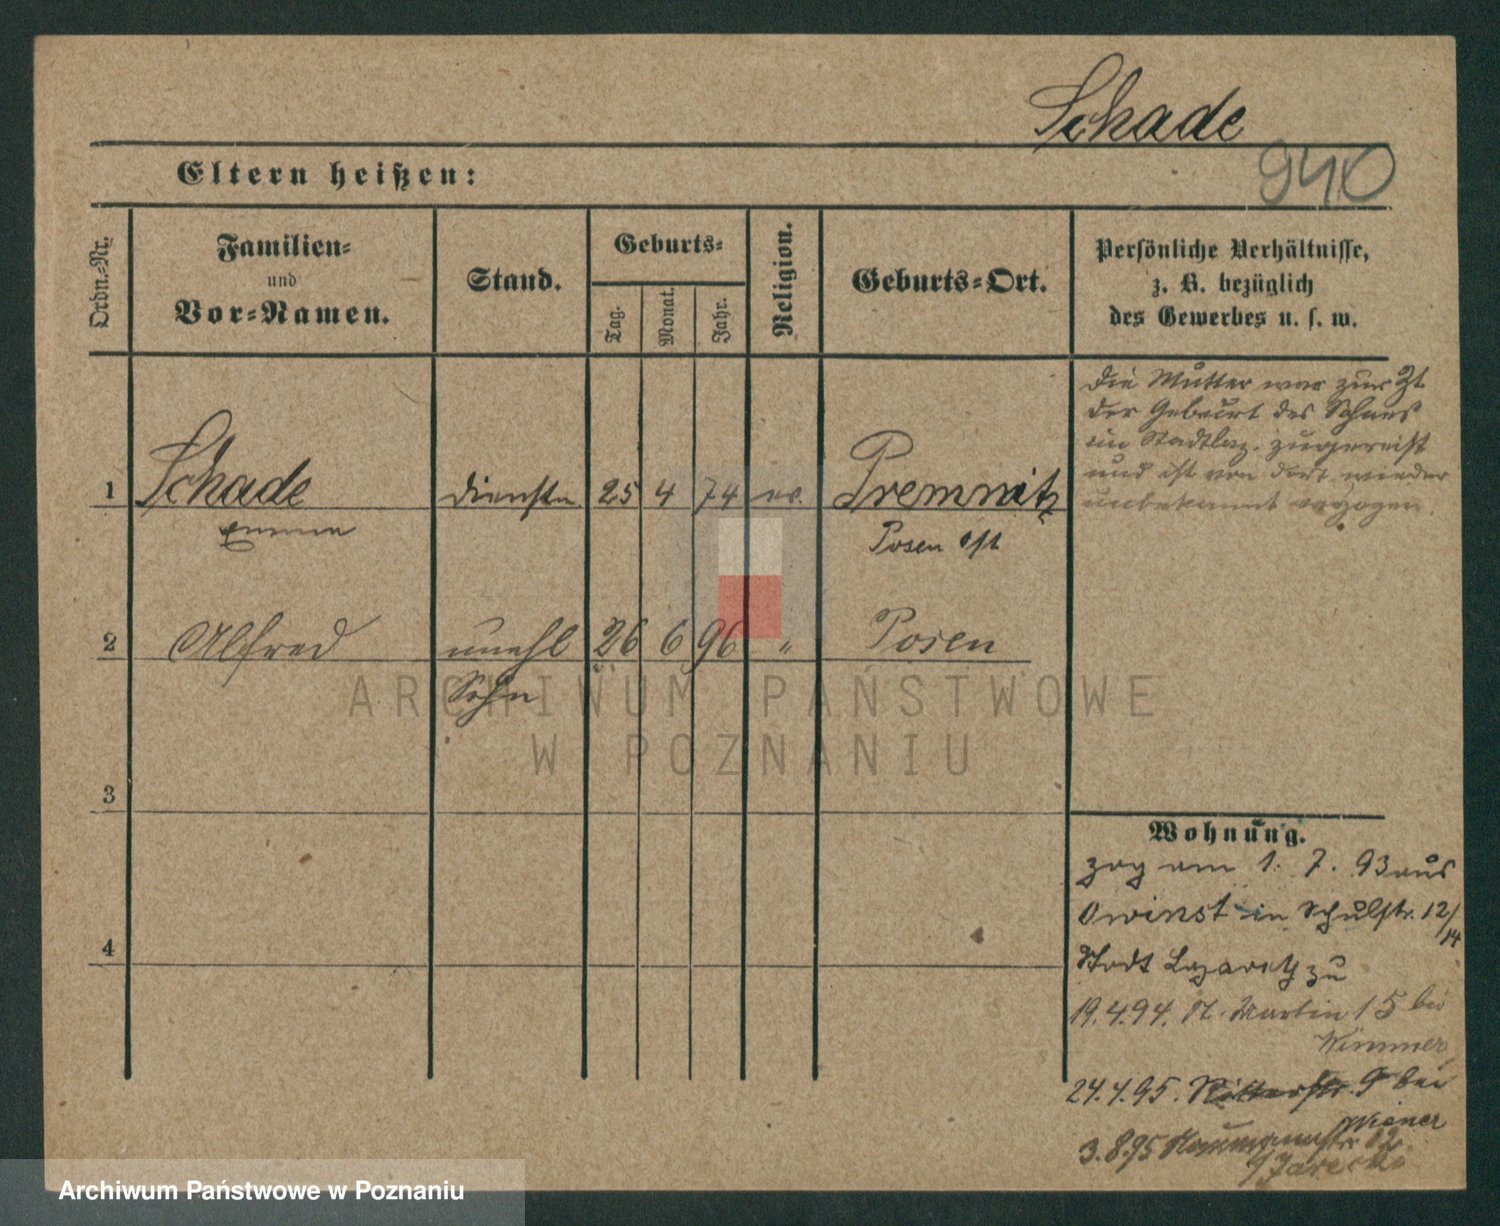 Schade
940
Eltern heißen:
Ordn.-Nr.
Familien-
und
Vor-Namen.
Stand.
Geburts-
Tag.
Monat.
Jahr.
Religion.
Geburts-Ort.
Persönliche Verhältnisse,
z. B. bezüglich
des Gewerbes u. s. w.
Die Mutter war zur Zt.
der Geburt des Sohnes
im Stadtlaz. zugereist
und ist von dort wieder
unbekannt verzogen.
1 Schade Dienstm. 25 4 74 ev. Premnitz
Emma Posen Ost
2 Alfred unehl 26 6 96 " Posen
Sohn
3
4
Wohnung.
zog am 1. 7. 93 aus
Owinst in Schulstr. 12/14
Stadt Lazareth zu
19.4.94. St. Martin 15 bei
Wimmer
24.4.95. Ritterstr. 9 bei
Wiener
3.8.95 Naumannstr. 12
Jarecki
ARCHIWUM PAŃSTWOWE
W POZNANIU
Archiwum Państwowe w Poznaniu